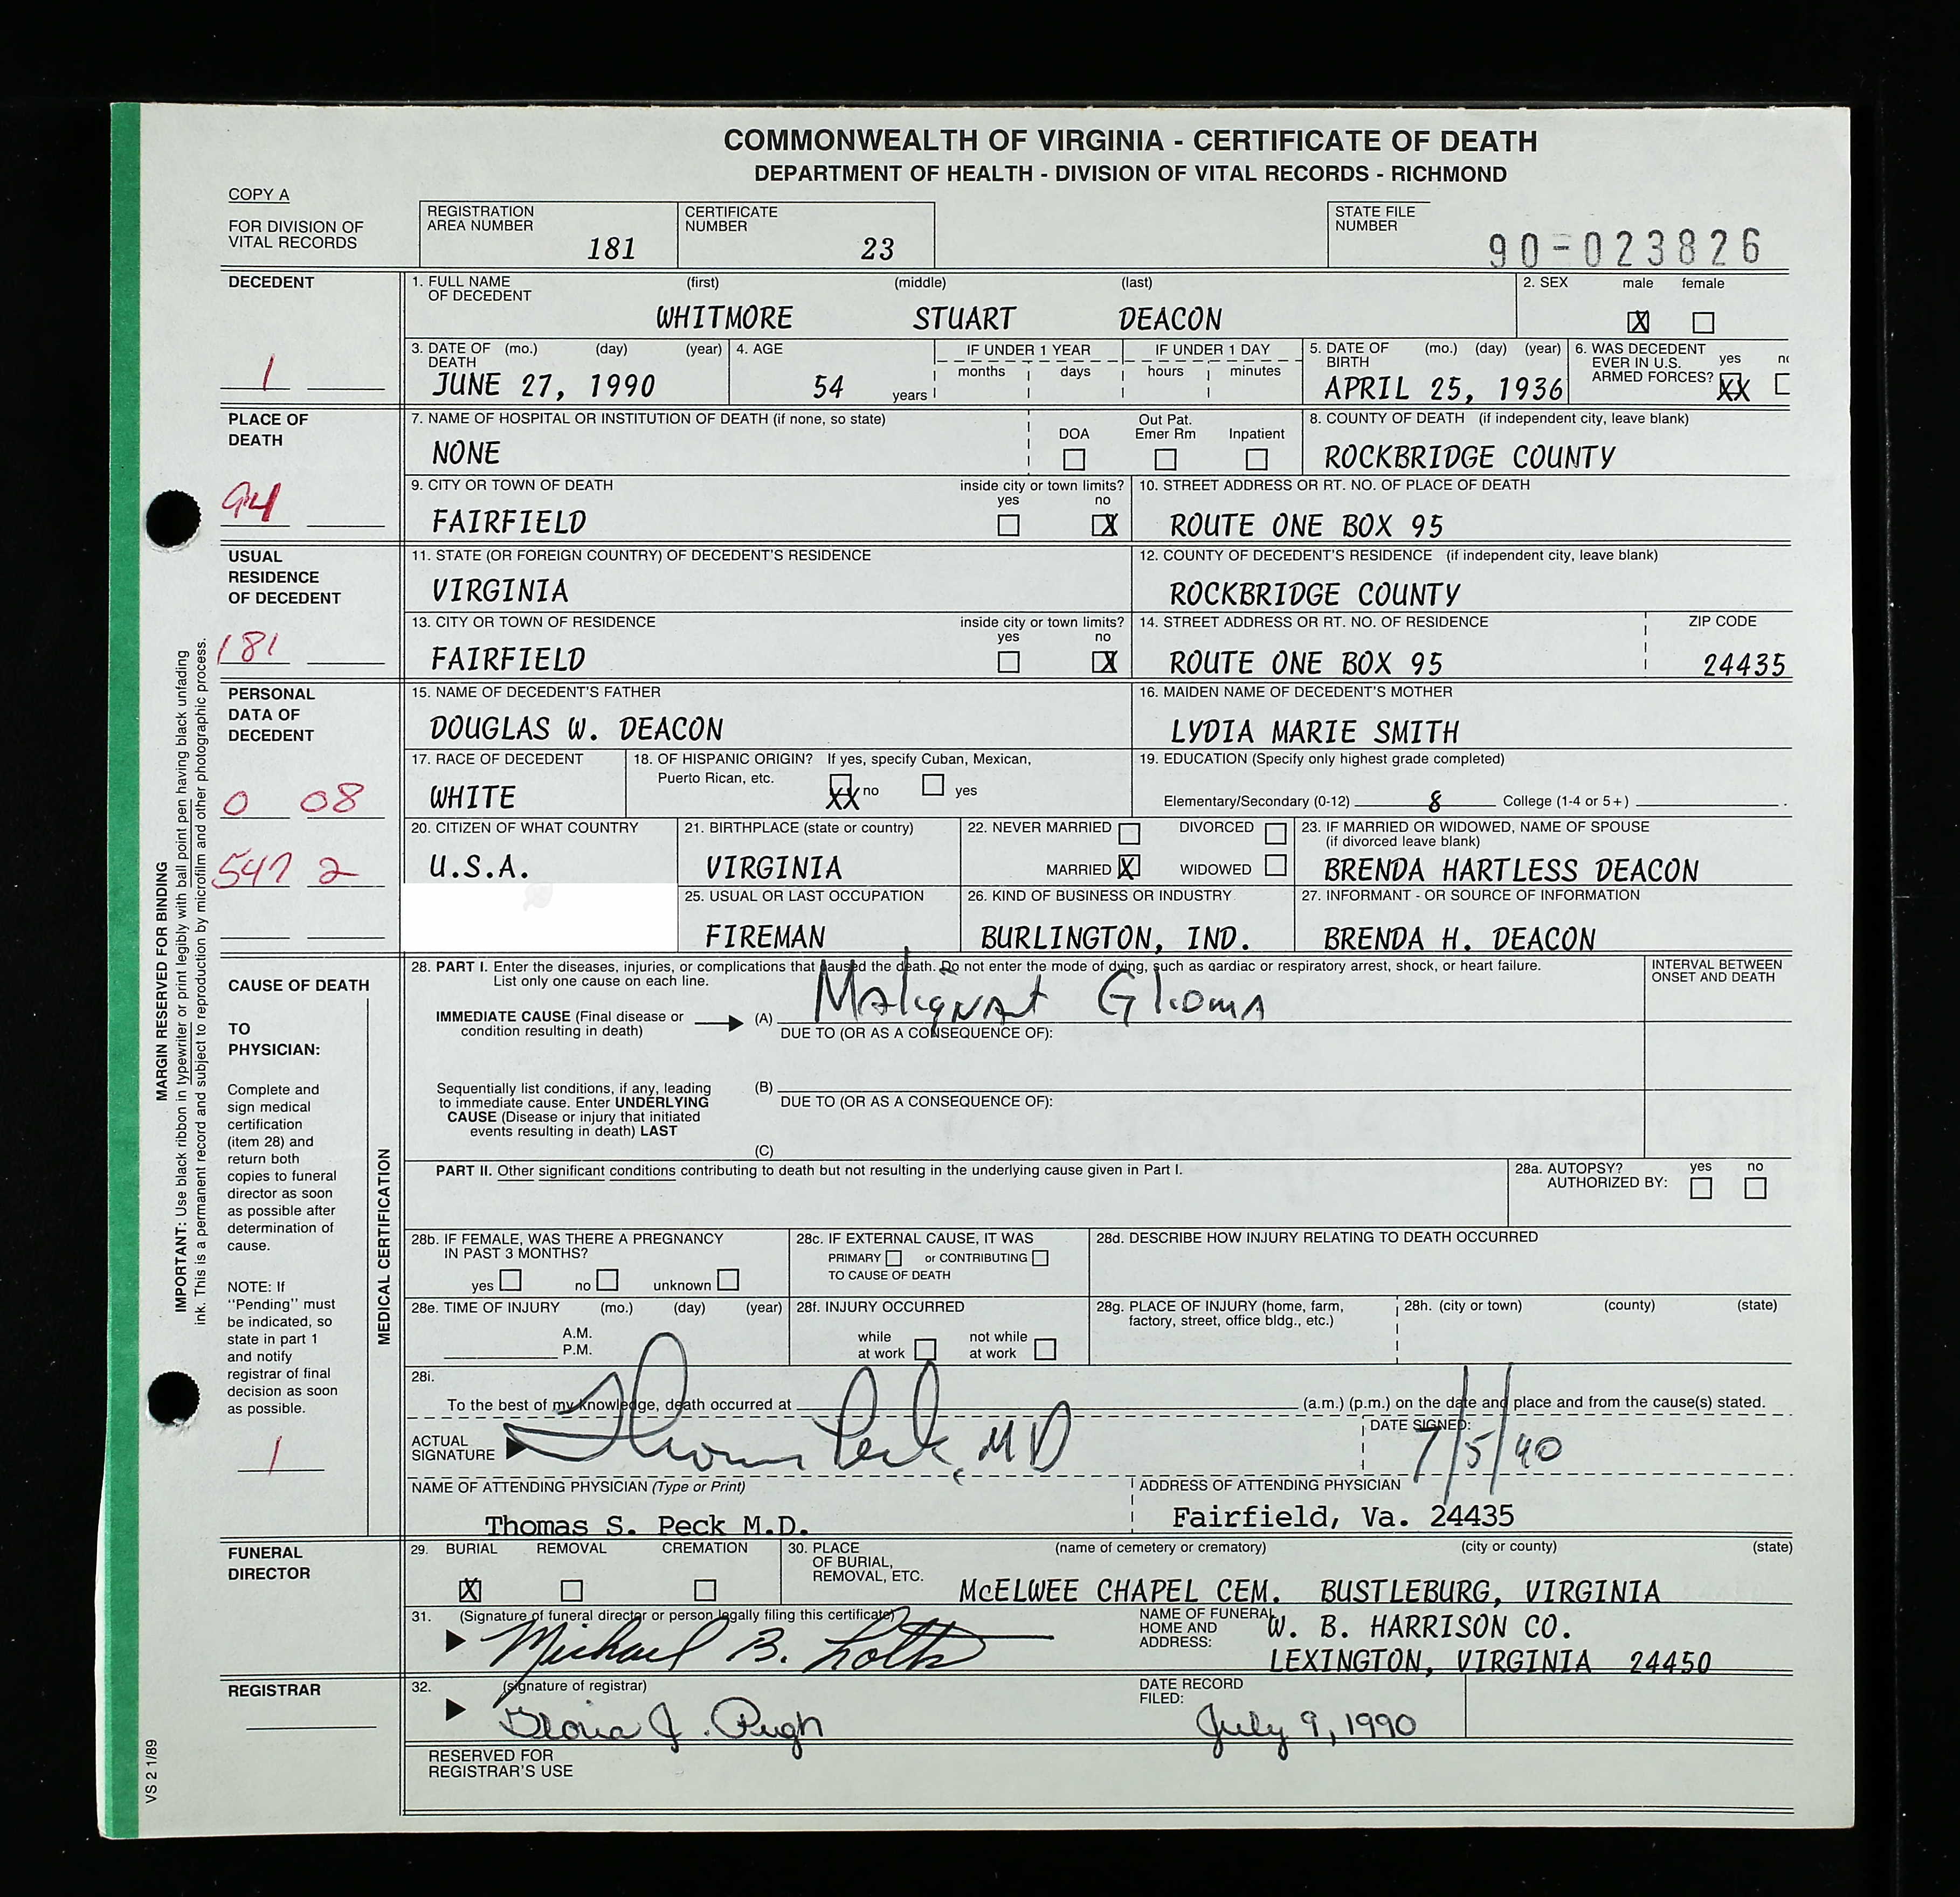 COMMONWEALTH OF VIRGINIA - CERTIFICATE OF DEATH
DEPARTMENT OF HEALTH - DIVISION OF VITAL RECORDS - RICHMOND
COPY A
FOR DIVISION OF
VITAL RECORDS
REGISTRATION
AREA NUMBER
181
CERTIFICATE
NUMBER
23
STATE FILE
NUMBER
90-023826
DECEDENT
1
1. FULL NAME
OF DECEDENT
(first) (middle) (last)
WHITMORE STUART DEACON
2. SEX male female
X
3. DATE OF (mo.) (day) (year)
DEATH
JUNE 27, 1990
4. AGE
54 years
IF UNDER 1 YEAR
months days
IF UNDER 1 DAY
hours minutes
5. DATE OF (mo.) (day) (year)
BIRTH
APRIL 25, 1936
6. WAS DECEDENT
EVER IN U.S.
ARMED FORCES?
yes
XX
PLACE OF
DEATH
94
7. NAME OF HOSPITAL OR INSTITUTION OF DEATH (if none, so state)
NONE
DOA
Out Pat.
Emer Rm
Inpatient
8. COUNTY OF DEATH (if independent city, leave blank)
ROCKBRIDGE COUNTY
9. CITY OR TOWN OF DEATH
FAIRFIELD
inside city or town limits?
yes no
X
10. STREET ADDRESS OR RT. NO. OF PLACE OF DEATH
ROUTE ONE BOX 95
USUAL
RESIDENCE
OF DECEDENT
181
11. STATE (OR FOREIGN COUNTRY) OF DECEDENT'S RESIDENCE
VIRGINIA
12. COUNTY OF DECEDENT'S RESIDENCE (if independent city, leave blank)
ROCKBRIDGE COUNTY
13. CITY OR TOWN OF RESIDENCE
FAIRFIELD
inside city or town limits?
yes no
X
14. STREET ADDRESS OR RT. NO. OF RESIDENCE
ROUTE ONE BOX 95
ZIP CODE
24435
PERSONAL
DATA OF
DECEDENT
0 08
547 2
15. NAME OF DECEDENT'S FATHER
DOUGLAS W. DEACON
16. MAIDEN NAME OF DECEDENT'S MOTHER
LYDIA MARIE SMITH
17. RACE OF DECEDENT
WHITE
18. OF HISPANIC ORIGIN? If yes, specify Cuban, Mexican,
Puerto Rican, etc.
XX no yes
19. EDUCATION (Specify only highest grade completed)
Elementary/Secondary (0-12) 8 College (1-4 or 5+)
20. CITIZEN OF WHAT COUNTRY
U.S.A.
21. BIRTHPLACE (state or country)
VIRGINIA
22. NEVER MARRIED DIVORCED
MARRIED X WIDOWED
23. IF MARRIED OR WIDOWED, NAME OF SPOUSE
(if divorced leave blank)
BRENDA HARTLESS DEACON
25. USUAL OR LAST OCCUPATION
FIREMAN
26. KIND OF BUSINESS OR INDUSTRY
BURLINGTON, IND.
27. INFORMANT - OR SOURCE OF INFORMATION
BRENDA H. DEACON
CAUSE OF DEATH
TO
PHYSICIAN:
Complete and
sign medical
certification
(item 28) and
return both
copies to funeral
director as soon
as possible after
determination of
cause.
NOTE: If
"Pending" must
be indicated, so
state in part 1
and notify
registrar of final
decision as soon
as possible.
1
MEDICAL CERTIFICATION
28. PART I. Enter the diseases, injuries, or complications that caused the death. Do not enter the mode of dying, such as cardiac or respiratory arrest, shock, or heart failure.
List only one cause on each line.
INTERVAL BETWEEN
ONSET AND DEATH
IMMEDIATE CAUSE (Final disease or
condition resulting in death)
(A) Malignant Glioma
DUE TO (OR AS A CONSEQUENCE OF):
Sequentially list conditions, if any, leading
to immediate cause. Enter UNDERLYING
CAUSE (Disease or injury that initiated
events resulting in death) LAST
(B)
DUE TO (OR AS A CONSEQUENCE OF):
(C)
PART II. Other significant conditions contributing to death but not resulting in the underlying cause given in Part I.
28a. AUTOPSY? yes no
AUTHORIZED BY:
28b. IF FEMALE, WAS THERE A PREGNANCY
IN PAST 3 MONTHS?
yes no unknown
28c. IF EXTERNAL CAUSE, IT WAS
PRIMARY or CONTRIBUTING
TO CAUSE OF DEATH
28d. DESCRIBE HOW INJURY RELATING TO DEATH OCCURRED
28e. TIME OF INJURY (mo.) (day) (year)
A.M.
P.M.
28f. INJURY OCCURRED
while
at work
not while
at work
28g. PLACE OF INJURY (home, farm,
factory, street, office bldg., etc.)
28h. (city or town) (county) (state)
28i.
To the best of my knowledge, death occurred at (a.m.) (p.m.) on the date and place and from the cause(s) stated.
ACTUAL
SIGNATURE
Thomas Peck, MD
DATE SIGNED:
7/5/90
NAME OF ATTENDING PHYSICIAN (Type or Print)
Thomas S. Peck M.D.
ADDRESS OF ATTENDING PHYSICIAN
Fairfield, Va. 24435
FUNERAL
DIRECTOR
29. BURIAL REMOVAL CREMATION
X
30. PLACE
OF BURIAL,
REMOVAL, ETC.
(name of cemetery or crematory) (city or county) (state)
McELWEE CHAPEL CEM. BUSTLEBURG, VIRGINIA
31. (Signature of funeral director or person legally filing this certificate)
Michael B.
NAME OF FUNERAL
HOME AND
ADDRESS:
W. B. HARRISON CO.
LEXINGTON, VIRGINIA 24450
REGISTRAR
32. (signature of registrar)
J. Pugh
DATE RECORD
FILED:
July 9, 1990
RESERVED FOR
REGISTRAR'S USE
MARGIN RESERVED FOR BINDING
IMPORTANT: Use black ribbon in typewriter or print legibly with ball point pen having black unfading
ink. This is a permanent record and subject to reproduction by microfilm and other photographic process.
VS 2 1/89